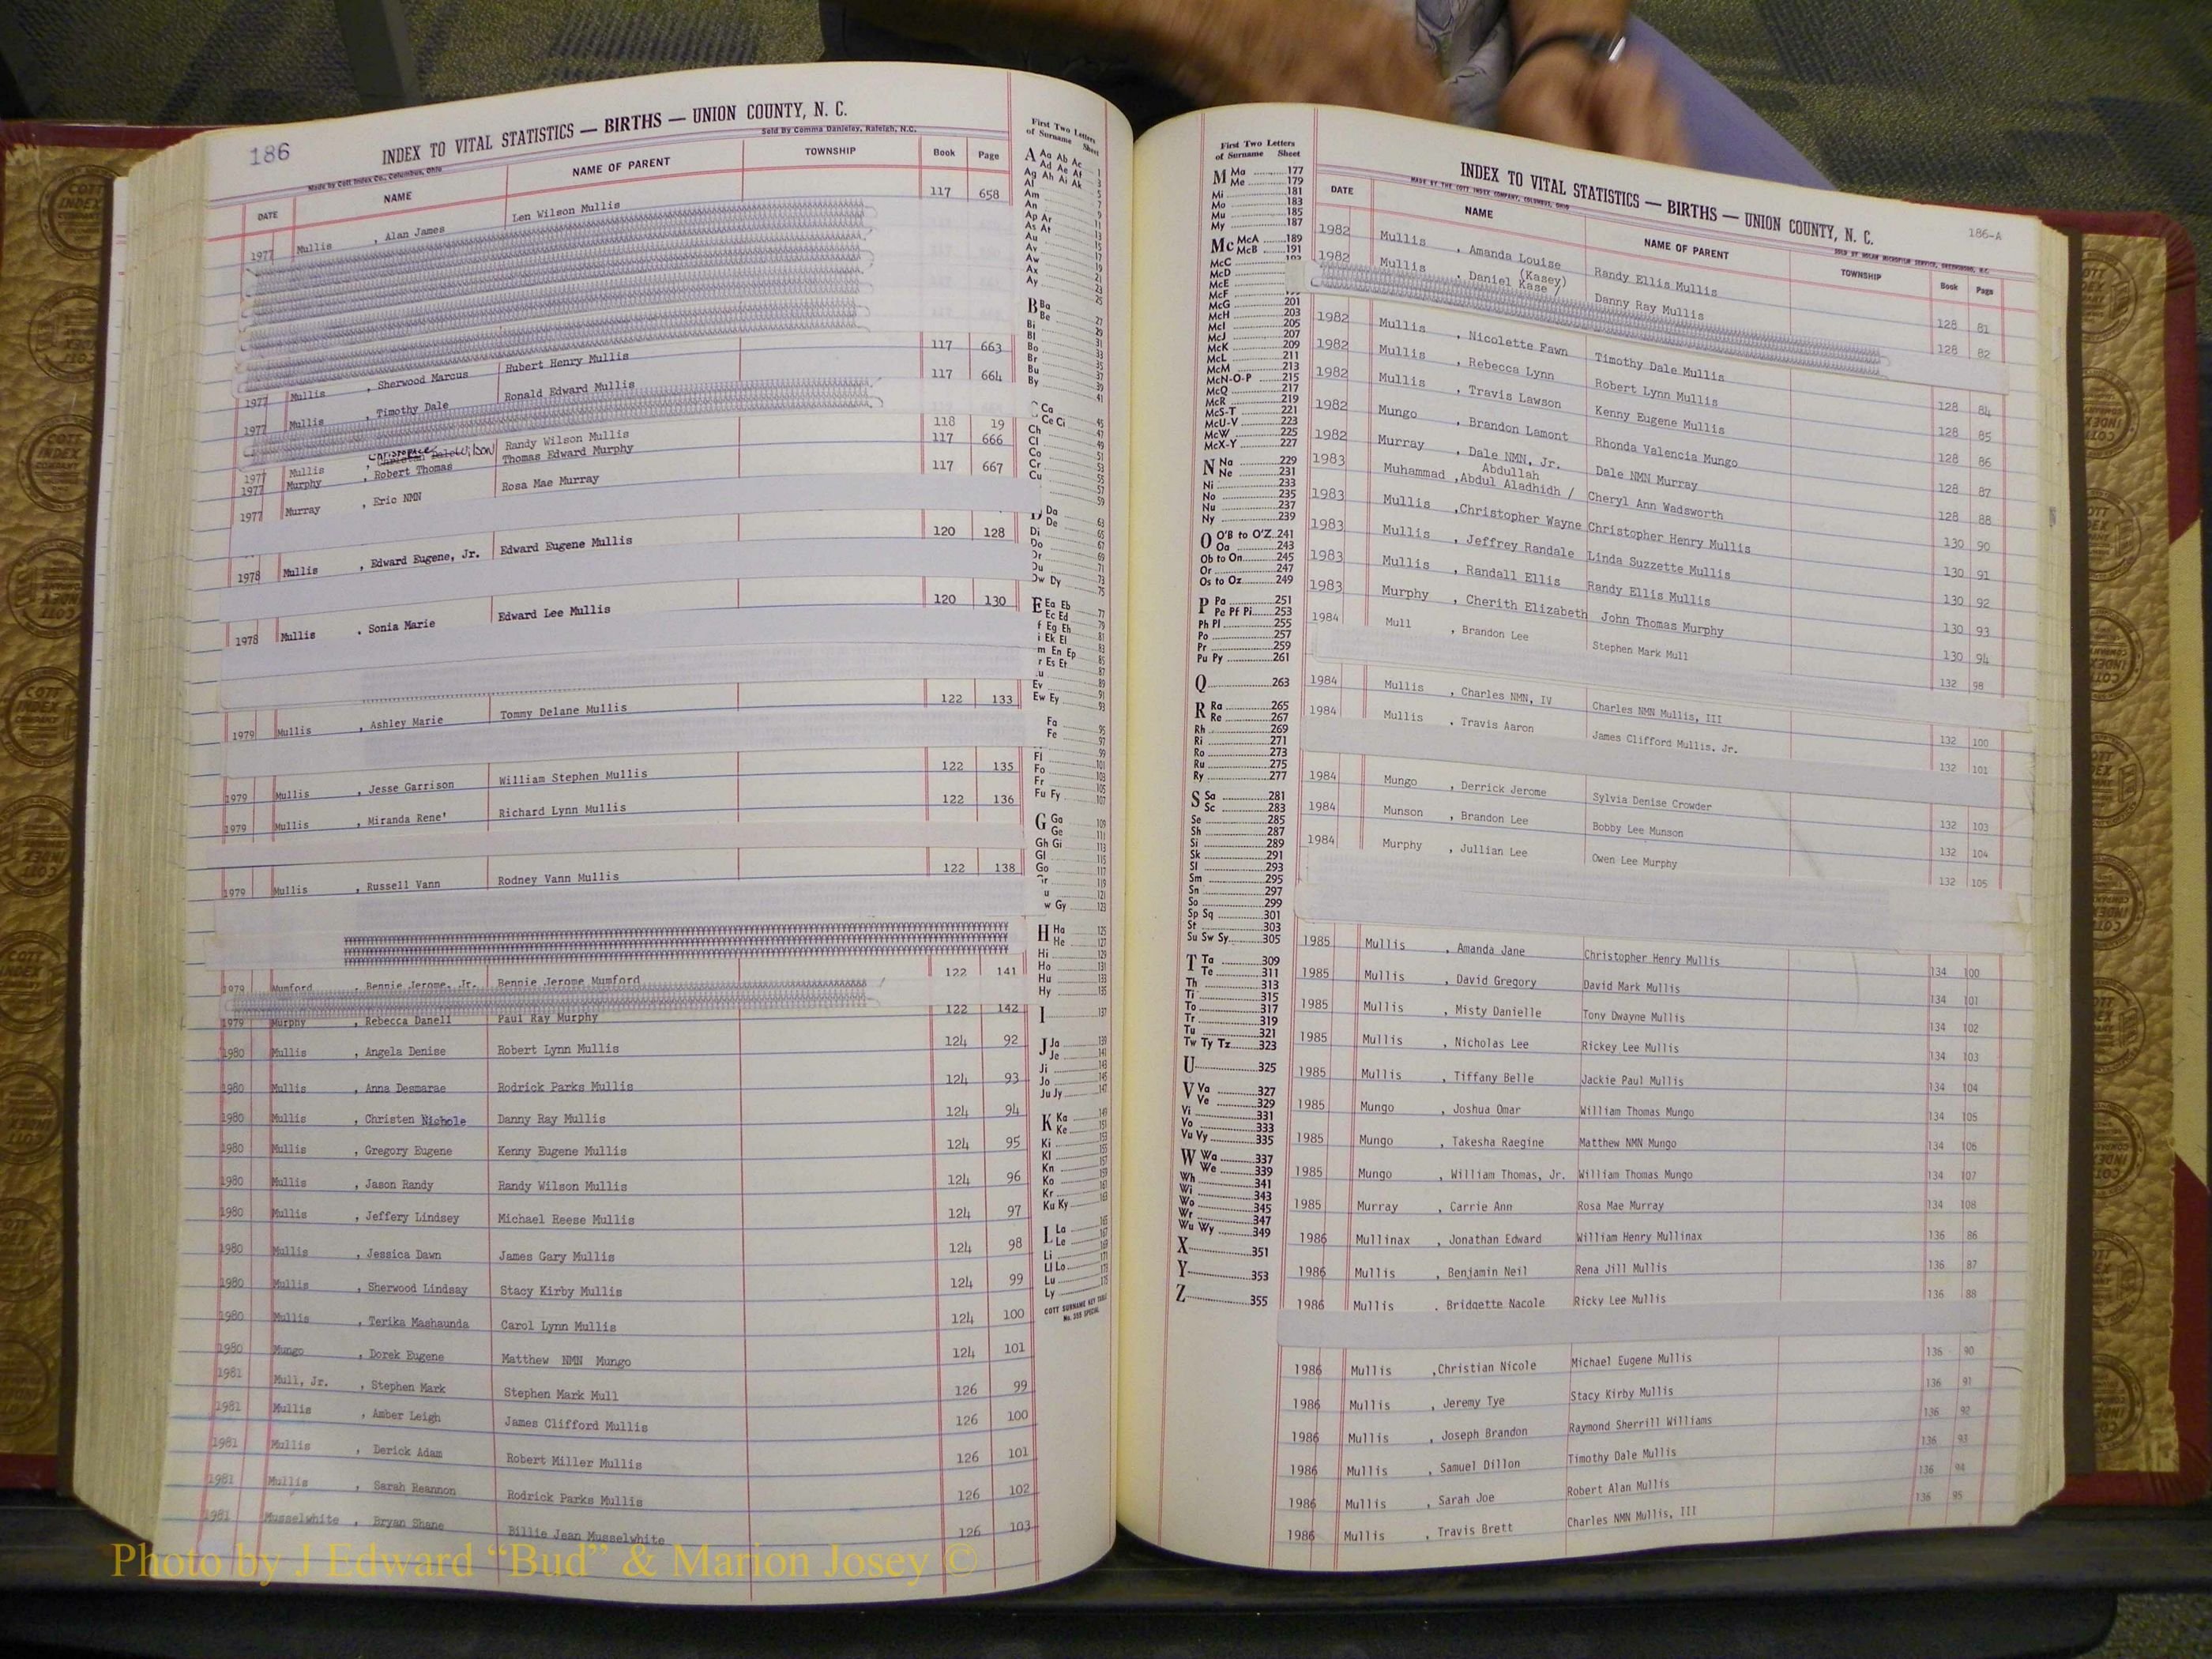 186
INDEX TO VITAL STATISTICS — BIRTHS — UNION COUNTY, N. C.
Made by Cott Index Co., Columbus, Ohio
Sold By Comma Danieley, Raleigh, N.C.
DATE NAME NAME OF PARENT TOWNSHIP Book Page
1977 Mullis , Alan James Len Wilson Mullis 117 658
1977 Mullis , Sherwood Marcus Hubert Henry Mullis 117 663
1977 Mullis , Timothy Dale Ronald Edward Mullis 117 664
1977 Mullis , Christopher Wilson Randy Wilson Mullis 118 19
1977 Murphy , Robert Thomas Thomas Edward Murphy 117 666
1977 Murray , Eric NMN Rosa Mae Murray 117 667
1978 Mullis , Edward Eugene, Jr. Edward Eugene Mullis 120 128
1978 Mullis , Sonia Marie Edward Lee Mullis 120 130
1979 Mullis , Ashley Marie Tommy Delane Mullis 122 133
1979 Mullis , Jesse Garrison William Stephen Mullis 122 135
1979 Mullis , Miranda Rene' Richard Lynn Mullis 122 136
1979 Mullis , Russell Vann Rodney Vann Mullis 122 138
1979 Mumford , Bennie Jerome, Jr. Bennie Jerome Mumford 122 141
1979 Murphy , Rebecca Danell Paul Ray Murphy 122 142
1980 Mullis , Angela Denise Robert Lynn Mullis 124 92
1980 Mullis , Anna Desmarae Rodrick Parks Mullis 124 93
1980 Mullis , Christen Nichole Danny Ray Mullis 124 94
1980 Mullis , Gregory Eugene Kenny Eugene Mullis 124 95
1980 Mullis , Jason Randy Randy Wilson Mullis 124 96
1980 Mullis , Jeffery Lindsey Michael Reese Mullis 124 97
1980 Mullis , Jessica Dawn James Gary Mullis 124 98
1980 Mullis , Sherwood Lindsay Stacy Kirby Mullis 124 99
1980 Mullis , Terika Mashaunda Carol Lynn Mullis 124 100
1980 Mungo , Dorek Eugene Matthew NMN Mungo 124 101
1981 Mull, Jr. , Stephen Mark Stephen Mark Mull 126 99
1981 Mullis , Amber Leigh James Clifford Mullis 126 100
1981 Mullis , Derick Adam Robert Miller Mullis 126 101
1981 Mullis , Sarah Reannon Rodrick Parks Mullis 126 102
1981 Musselwhite , Bryan Shane Billie Jean Musselwhite 126 103
First Two Letters
of Surname Sheet
A Aa Ab Ac 1
Ad Ae Af 3
Ag Ah Ai Ak 5
Al 7
Am 9
An 11
Ap Ar 13
As At 15
Au 17
Av 19
Aw 21
Ax 23
Ay 25
B Ba 27
Be 29
Bi 31
Bl 33
Bo 35
Br 37
Bu 39
By 41
Ca 45
Ce Ci 47
Ch 49
Cl 51
Co 53
Cr 55
Cu 57
59
Da 63
De 65
Di 67
Do 69
Dr 71
Du 73
Dw Dy 75
E Ea Eb 77
Ec Ed 79
f Eg Eh 81
i Ek El 83
m En Ep 85
r Es Et 87
u 89
Ev 91
Ew Ey 93
Fa 95
Fe 97
99
Fl 101
Fo 103
Fr 105
Fu Fy 107
G Ga 109
Ge 111
Gh Gi 113
Gl 115
Go 117
Gr 119
u 121
w Gy 123
H Ha 125
He 127
Hi 129
Ho 131
Hu 133
Hy 135
I 137
J Ja 139
Je 141
Ji 143
Jo 145
Ju Jy 147
K Ka 149
Ke 151
Ki 153
Kl 155
Kn 157
Ko 159
Kr 161
Ku Ky 163
L La 165
Le 167
Li 169
Ll Lo 171
Lu 173
Ly 175
COTT SURNAME KEY TABLE
No. 355 SPECIAL
First Two Letters
of Surname Sheet
M Ma 177
Me 179
Mi 181
Mo 183
Mu 185
My 187
Mc McA 189
McB 191
McC 193
McD
McE
McF
McG 201
McH 203
McI 205
McJ 207
McK 209
McL 211
McM 213
McN-O-P 215
McQ 217
McR 219
McS-T 221
McU-V 223
McW 225
McX-Y 227
N Na 229
Ne 231
Ni 233
No 235
Nu 237
Ny 239
O O'B to O'Z 241
Oa 243
Ob to On 245
Or 247
Os to Oz 249
P Pa 251
Pe Pf Pi 253
Ph Pl 255
Po 257
Pr 259
Pu Py 261
Q 263
R Ra 265
Re 267
Rh 269
Ri 271
Ro 273
Ru 275
Ry 277
S Sa 281
Sc 283
Se 285
Sh 287
Si 289
Sk 291
Sl 293
Sm 295
Sn 297
So 299
Sp Sq 301
St 303
Su Sw Sy 305
T Ta 309
Te 311
Th 313
Ti 315
To 317
Tr 319
Tu 321
Tw Ty Tz 323
U 325
V Va 327
Ve 329
Vi 331
Vo 333
Vu Vy 335
W Wa 337
We 339
Wh 341
Wi 343
Wo 345
Wr 347
Wu Wy 349
X 351
Y 353
Z 355
186-A
INDEX TO VITAL STATISTICS — BIRTHS — UNION COUNTY, N. C.
MADE BY THE COTT INDEX COMPANY, COLUMBUS, OHIO
DATE NAME NAME OF PARENT TOWNSHIP Book Page
1982 Mullis , Amanda Louise Randy Ellis Mullis 128 81
(Kasey)
1982 Mullis , Daniel Kase Danny Ray Mullis 128 82
1982 Mullis , Nicolette Fawn Timothy Dale Mullis 128 84
1982 Mullis , Rebecca Lynn Robert Lynn Mullis 128 85
1982 Mullis , Travis Lawson Kenny Eugene Mullis 128 86
1982 Mungo , Brandon Lamont Rhonda Valencia Mungo 128 87
1982 Murray , Dale NMN, Jr. Dale NMN Murray 128 88
Abdullah
1983 Muhammad , Abdul Aladhidh / Cheryl Ann Wadsworth 130 90
1983 Mullis , Christopher Wayne Christopher Henry Mullis 130 91
1983 Mullis , Jeffrey Randale Linda Suzzette Mullis 130 92
1983 Mullis , Randall Ellis Randy Ellis Mullis 130 93
1983 Murphy , Cherith Elizabeth John Thomas Murphy 130 94
1984 Mull , Brandon Lee Stephen Mark Mull 132 98
1984 Mullis , Charles NMN, IV Charles NMN Mullis, III 132 100
1984 Mullis , Travis Aaron James Clifford Mullis, Jr. 132 101
1984 Mungo , Derrick Jerome Sylvia Denise Crowder 132 103
1984 Munson , Brandon Lee Bobby Lee Munson 132 104
1984 Murphy , Jullian Lee Owen Lee Murphy 132 105
1985 Mullis , Amanda Jane Christopher Henry Mullis 134 100
1985 Mullis , David Gregory David Mark Mullis 134 101
1985 Mullis , Misty Danielle Tony Dwayne Mullis 134 102
1985 Mullis , Nicholas Lee Rickey Lee Mullis 134 103
1985 Mullis , Tiffany Belle Jackie Paul Mullis 134 104
1985 Mungo , Joshua Omar William Thomas Mungo 134 105
1985 Mungo , Takesha Raegine Matthew NMN Mungo 134 106
1985 Mungo , William Thomas, Jr. William Thomas Mungo 134 107
1985 Murray , Carrie Ann Rosa Mae Murray 134 108
1986 Mullinax , Jonathan Edward William Henry Mullinax 136 86
1986 Mullis , Benjamin Neil Rena Jill Mullis 136 87
1986 Mullis , Bridgette Nacole Ricky Lee Mullis 136 88
1986 Mullis , Christian Nicole Michael Eugene Mullis 136 90
1986 Mullis , Jeremy Tye Stacy Kirby Mullis 136 91
1986 Mullis , Joseph Brandon Raymond Sherrill Williams 136 92
1986 Mullis , Samuel Dillon Timothy Dale Mullis 136 93
1986 Mullis , Sarah Joe Robert Alan Mullis 136 94
1986 Mullis , Travis Brett Charles NMN Mullis, III 136 95
Photo by J Edward “Bud” & Marion Josey ©